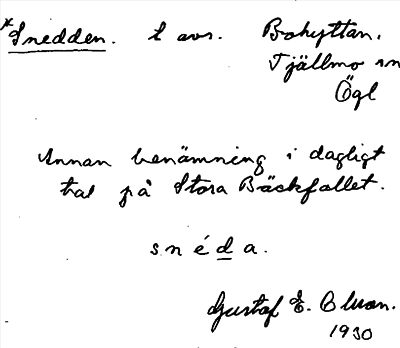 *Snedden. t avs. Bohyttan,
Tjällmo sn
Ögl
Annan benämning i dagligt
tal på Stora Bäckfallet.
snéda.
Gustaf E.
1930